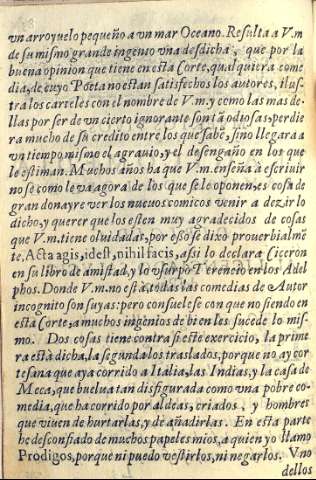 vn arroyuelo pequeño a vn mar Oceano. Resulta a V.m
de su mismo grande ingenio vna desdicha, que por la
buena opinion que tiene en esta Corte, qualquiera come
dia, de cuyo Poeta no estan satisfechos los autores, ilus-
tra los carteles con el nombre de V.m. y como las mas de-
llas por ser de vn cierto ignorante son tã odiosas, perdie
ra mucho de su credito entre los que sabẽ, sino llegara a
vn tiempo mismo el agrauio, y el desengaño en los que
le estiman. Muchos años ha que V.m. enseña a escriuir
no se como le va agora de los que se le oponen, es cosa de
gran donayre ver los nueuos comicos venir a dezir lo
dicho, y querer que los esten muy agradecidos de cosas
que V.m. tiene oluidadas, por esso se dixo prouerbialmẽ
te, Acta agis, idest, nihil facis, assi lo declara Ciceron
en su libro de amistad, y lo vsurpò Terencio en los Adel
phos. Donde V.m. no està, todas las comedias de Autor
incognito son suyas: pero consuelese con que no siendo en
esta Corte, a muchos ingenios de bien les sucede lo mis-
mo. Dos cosas tiene contra si este exercicio, la prime
ra està dicha, la segunda los traslados, porque no ay cor
tesana que aya corrido a Italia, las Indias, y la casa de
Meca, que buelua tan disfigurada como vna pobre co-
media, que ha corrido por aldeas, criados, y hombres
que viuen de hurtarlas, y de añadirlas. En esta parte
he desconfiado de muchos papeles mios, a quien yo llamo
Prodigos, porque ni puedo vestirlos, ni negarlos. Vno
dellos